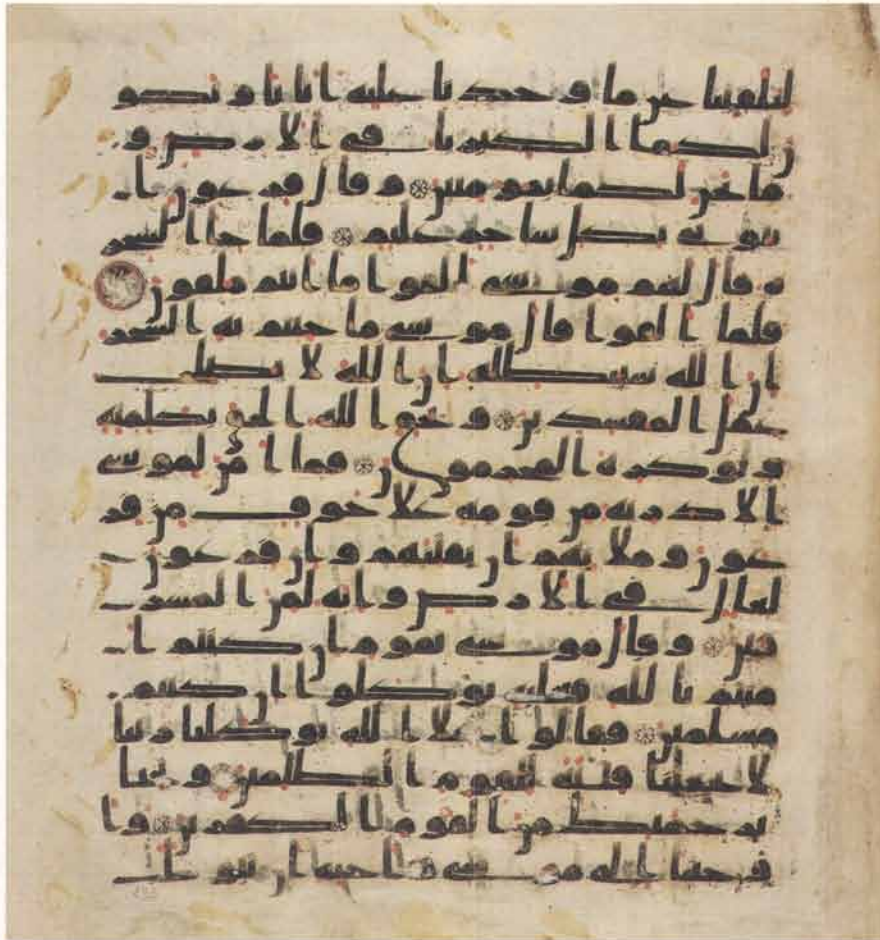 لتلفتنا عن ما وجدنا عليه ابانا وتكو
ن لكما الكبريا في الارض و
ما نحن لكما بمومنين وقال فرعون ا
يتوني بكل ساحر عليم فلما جا السحر
ة قال لهم موسى القوا ما انتم ملقون
فلما القوا قال موسى ما جيتم به السحر
ان الله سيبطله ان الله لا يصلح
عمل المفسدين ويحق الله الحق بكلمته
ولو كره المجرمون فما امن لموسى
الا ذرية من قومه على خوف من فر
عون وملايهم ان يفتنهم وان فرعون
لعال في الارض وانه لمن المسر
فين وقال موسى يقوم ان كنتم ا
منتم بالله فعليه توكلوا ان كنتم
مسلمين فقالوا على الله توكلنا ربنا
لا تجعلنا فتنة للقوم الظلمين ونجنا
برحمتك من القوم الكفرين وا
وحينا الى موسى واخيه ان تبوا